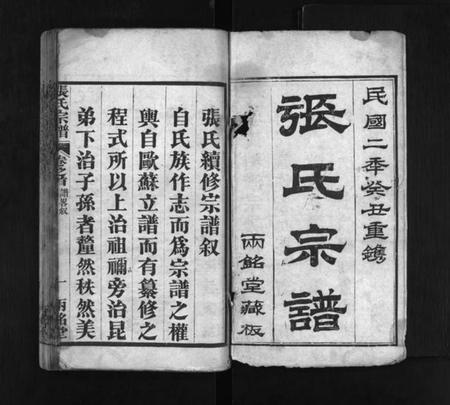 民國二年癸丑重鐫
張氏宗譜
兩銘堂藏板
張氏續修宗譜叙
自氏族作志而爲宗譜之權
輿自歐蘇立譜而有纂修之
程式所以上治祖禰旁治昆
弟下治子孫者釐然秩然美
張氏宗譜
卷之首
一 兩銘堂